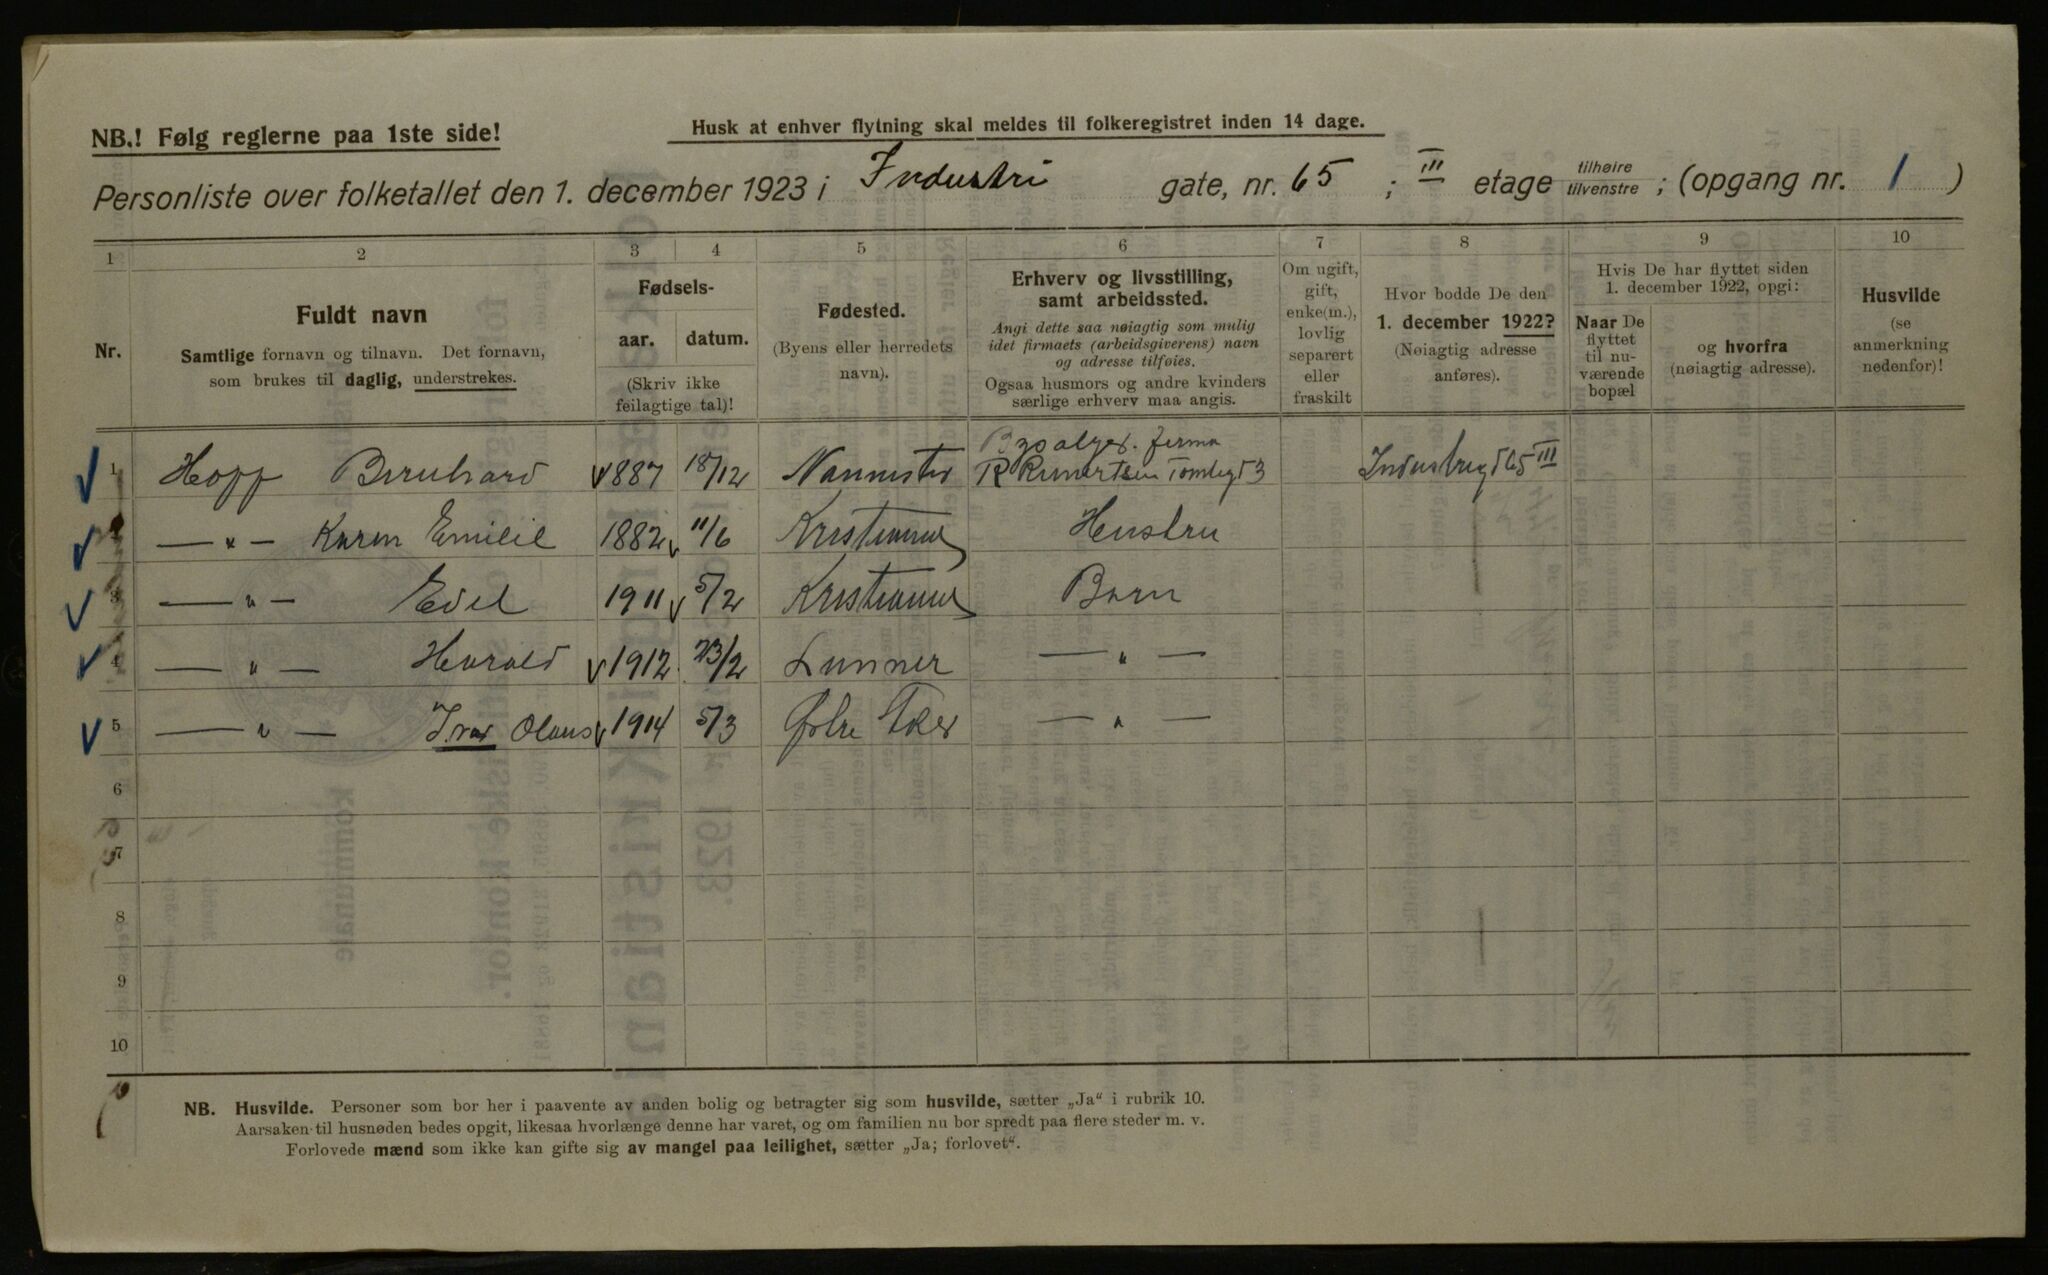 NB.! Følg reglerne paa 1ste side!
Husk at enhver flytning skal meldes til folkeregistret inden 14 dage.
Personliste over folketallet den 1. december 1923 i Industri gate, nr. 65 ; III etage tilhøire tilvenstre ; (opgang nr. 1 )
1 2 3 4 5 6 7 8 9 10
Nr.
Fuldt navn
Samtlige fornavn og tilnavn. Det fornavn,
som brukes til daglig, understrekes.
Fødsels-
aar. datum.
(Skriv ikke
feilagtige tal)!
Fødested.
(Byens eller herredets
navn).
Erhverv og livsstilling,
samt arbeidssted.
Angi dette saa nøiagtig som mulig
idet firmaets (arbeidsgiverens) navn
og adresse tilføies.
Ogsaa husmors og andre kvinders
særlige erhverv maa angis.
Om ugift,
gift,
enke(m.),
lovlig
separert
eller
fraskilt
Hvor bodde De den
1. december 1922?
(Nøiagtig adresse
anføres).
Hvis De har flyttet siden
1. december 1922, opgi:
Naar De
flyttet
til nu-
værende
bopæl
og hvorfra
(nøiagtig adresse).
Husvilde
(se
anmerkning
nedenfor)!
1 Hopp Bernhard 1887 18/12 Nannestad firma R Tomtegd 3 Industrigd 65 III
2 — " — Karen Emilie 1882 11/6 Kristiania Hustru
3 — " — Edel 1911 5/2 Kristiania Barn
4 — " — Harald 1912 23/2 Lunner — " —
5 — " — Ivar Olaus 1914 5/3 Østre Toten — " —
6
7
8
9
10
NB. Husvilde. Personer som bor her i paavente av anden bolig og betragter sig som husvilde, sætter „Ja“ i rubrik 10.
Aarsaken til husnøden bedes opgit, likesaa hvorlænge denne har varet, og om familien nu bor spredt paa flere steder m. v.
Forlovede mænd som ikke kan gifte sig av mangel paa leilighet, sætter „Ja; forlovet“.